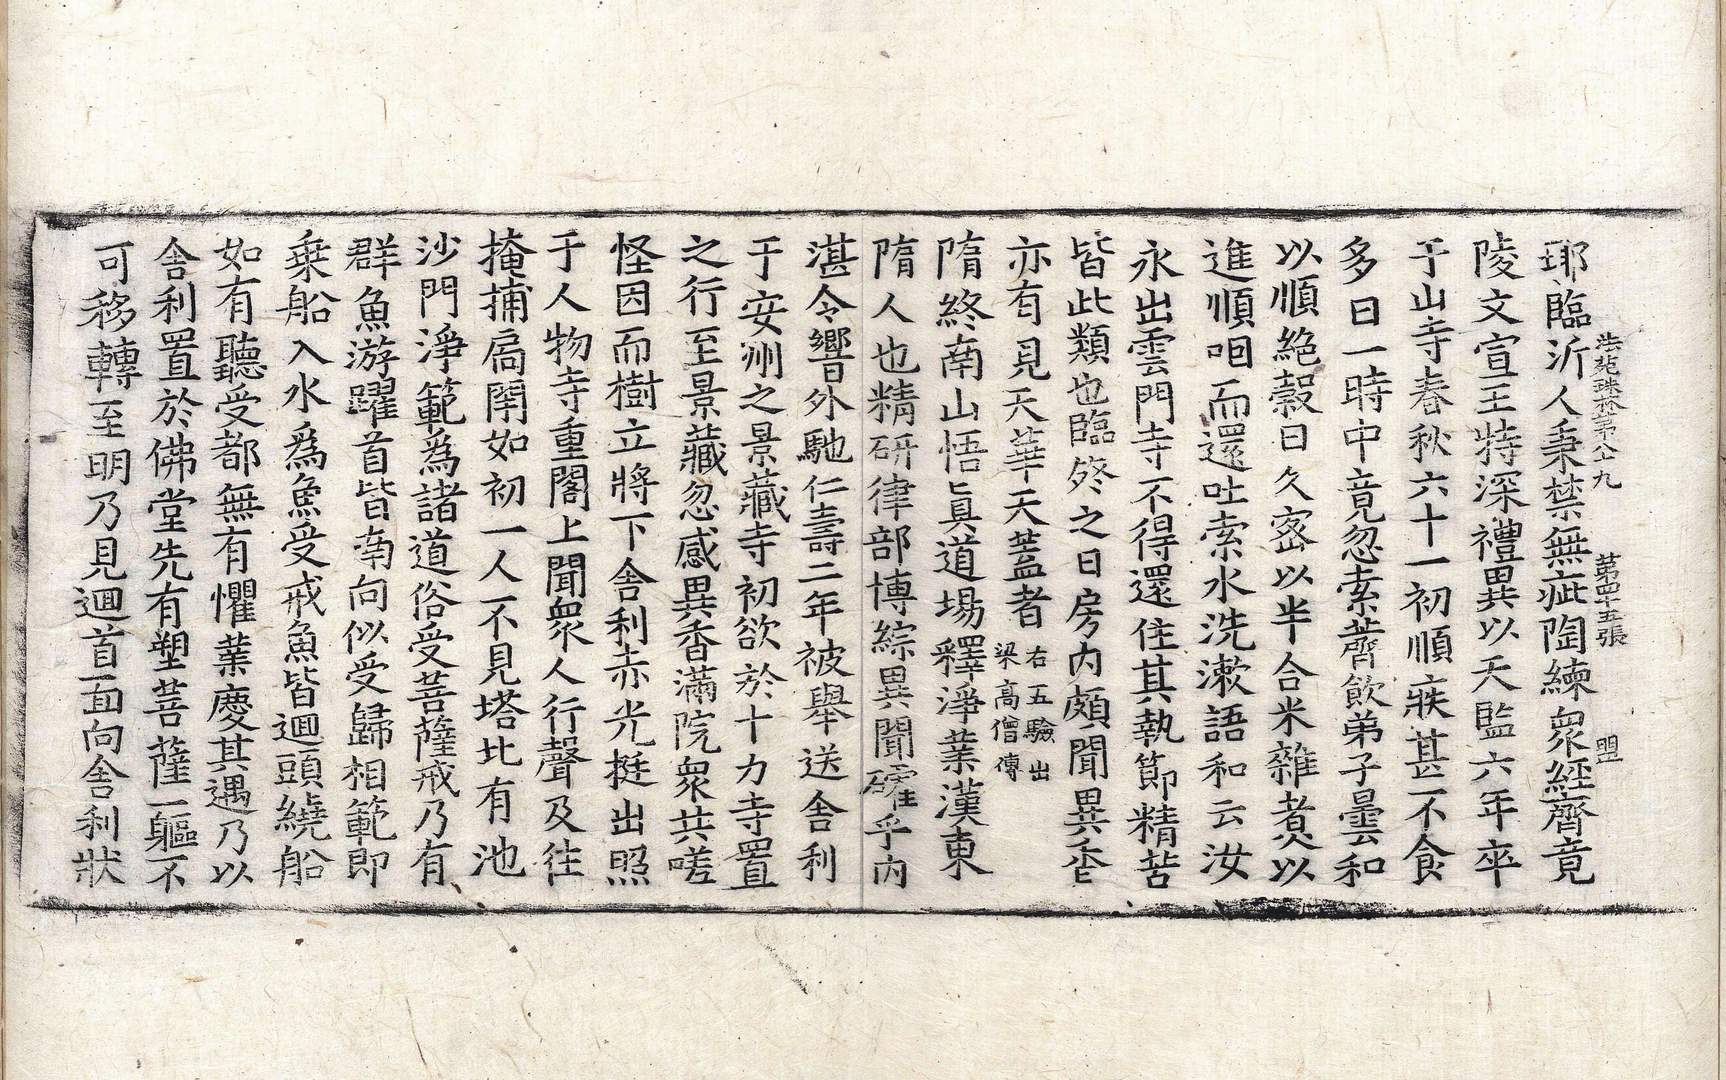 法苑珠林第八十九 第四十五張 盟
耶臨沂人秉禁無疵陶練衆經齊竟
陵文宣王特深禮異以天監六年卒
于山寺春秋六十一初順疾甚不食
多日一時中竟忽索齋飲弟子曇和
以順絶穀日久密以半合米雜煑以
進順咽而還吐索水洗漱語和云汝
永出雲門寺不得還住其執節精苦
皆此類也臨終之日房内頗聞異香
亦有見天華天蓋者右五驗出梁高僧傳
隋終南山悟眞道場釋淨業漢東
隋人也精研律部博綜異聞確乎内
湛令響外馳仁壽二年被舉送舍利
于安州之景藏寺初欲於十力寺置
之行至景藏忽感異香滿院衆共嗟
怪因而樹立將下舍利赤光挺出照
于人物寺重閣上聞衆人行聲及往
掩捕扃閇如初一人不見塔北有池
沙門淨範爲諸道俗受菩薩戒乃有
群魚游躍首皆南向似受歸相範即
乗船入水爲魚受戒魚皆迴頭繞船
如有聽受都無有懼業慶其遇乃以
舎利置於佛堂先有塑菩薩一軀不
可移轉至明乃見迴首面向舎利狀